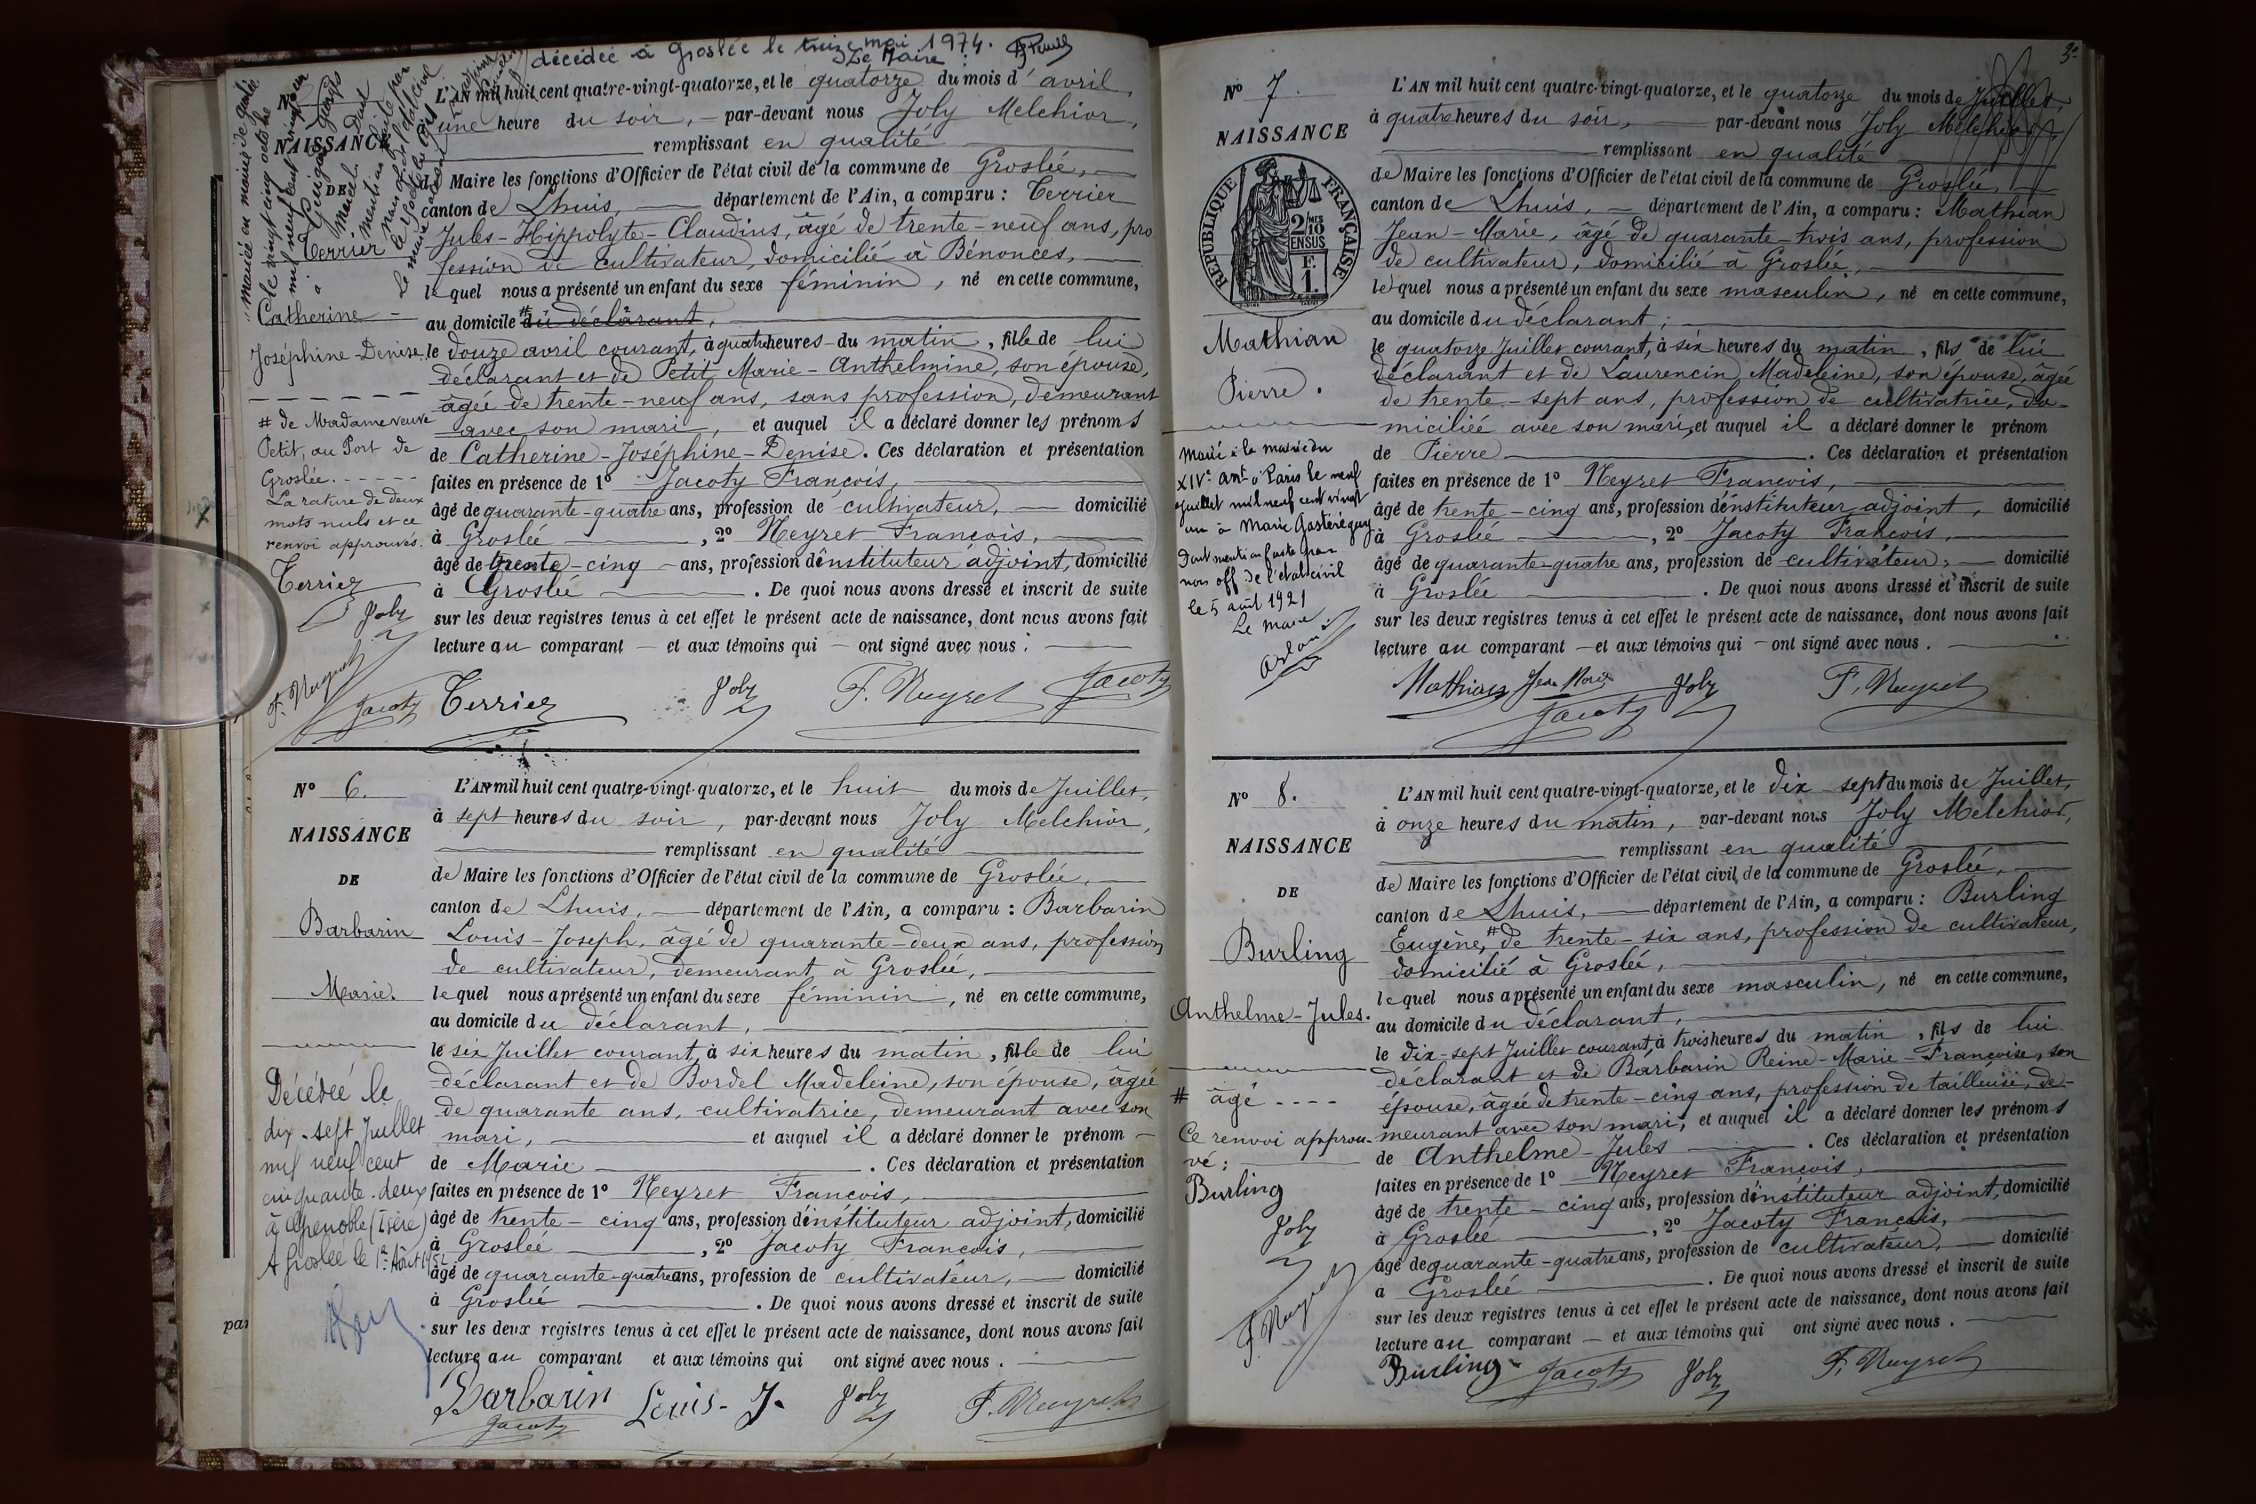 décédée à Groslée le treize mai 1974.
Le Maire :
Nº
NAISSANCE
DE
Terrier
Catherine
Joséphine-Denise.
# de Madame veuve
Petit, au Port de
Groslée.
La rature de deux
mots nuls et ce
renvoi approuvés.
Terrier
Joly
F. Neyret
Jacoty
mariée en mairie de
le vingt cinq octobre
mil neuf cent vingt
à
Marcel. Dont
mention faite par
nous
Le maire
L'AN mil huit cent quatre-vingt-quatorze, et le quatorze du mois d'avril,
à une heure du soir, par-devant nous Joly Melchior,
remplissant en qualité
de Maire les fonctions d'Officier de l'état civil de la commune de Groslée,
canton de Lhuis, département de l'Ain, a comparu : Terrier
Jules-Hippolyte-Claudius, âgé de trente-neuf ans, pro
fession de cultivateur, domicilié à Bénonces,
lequel nous a présenté un enfant du sexe féminin, né en cette commune,
au domicile # du déclarant,
le douze avril courant, à quatre heures du matin, fille de lui
déclarant et de Petit Marie-Anthelmine, son épouse,
âgée de trente-neuf ans, sans profession, demeurant
avec son mari, et auquel il a déclaré donner les prénoms
de Catherine-Joséphine-Denise. Ces déclaration et présentation
faites en présence de 1º Jacoty François,
âgé de quarante-quatre ans, profession de cultivateur, domicilié
à Groslée, 2º Neyret François,
âgé de trente-cinq ans, profession d'instituteur adjoint, domicilié
à Groslée. De quoi nous avons dressé et inscrit de suite
sur les deux registres tenus à cet effet le présent acte de naissance, dont nous avons fait
lecture au comparant et aux témoins qui ont signé avec nous.
Terrier Joly F. Neyret Jacoty
Nº 6.
NAISSANCE
DE
Barbarin
Marie.
Décédée le
dix-sept Juillet
mil neuf cent
cinquante-deux
à Grenoble (Isère)
A Groslée le 1er Août 1952
L'AN mil huit cent quatre-vingt-quatorze, et le huit du mois de Juillet,
à sept heures du soir, par-devant nous Joly Melchior,
remplissant en qualité
de Maire les fonctions d'Officier de l'état civil de la commune de Groslée,
canton de Lhuis, département de l'Ain, a comparu : Barbarin
Louis-Joseph, âgé de quarante-deux ans, profession
de cultivateur, demeurant à Groslée,
lequel nous a présenté un enfant du sexe féminin, né en cette commune,
au domicile du déclarant,
le six Juillet courant, à six heures du matin, fille de lui
déclarant et de Bordel Madeleine, son épouse, âgée
de quarante ans, cultivatrice, demeurant avec son
mari, et auquel il a déclaré donner le prénom
de Marie. Ces déclaration et présentation
faites en présence de 1º Neyret François,
âgé de trente-cinq ans, profession d'instituteur adjoint, domicilié
à Groslée, 2º Jacoty François,
âgé de quarante-quatre ans, profession de cultivateur, domicilié
à Groslée. De quoi nous avons dressé et inscrit de suite
sur les deux registres tenus à cet effet le présent acte de naissance, dont nous avons fait
lecture au comparant et aux témoins qui ont signé avec nous.
Barbarin Louis-J. Joly F. Neyret
Jacoty
par
3
Nº 7.
NAISSANCE
REPUBLIQUE FRANÇAISE
2/10
EN SUS
F.
1.
Mathian
Pierre.
Marié à la mairie du
XIVe arrt à Paris le neuf
juillet mil neuf cent vingt
un à Marie
Dont mention faite par
nous off de l'état civil
le 5 août 1921
Le maire
L'AN mil huit cent quatre-vingt-quatorze, et le quatorze du mois de Juillet,
à quatre heures du soir, par-devant nous Joly Melchior,
remplissant en qualité
de Maire les fonctions d'Officier de l'état civil de la commune de Groslée,
canton de Lhuis, département de l'Ain, a comparu : Mathian
Jean-Marie, âgé de quarante-trois ans, profession
de cultivateur, domicilié à Groslée,
lequel nous a présenté un enfant du sexe masculin, né en cette commune,
au domicile du déclarant ;
le quatorze Juillet courant, à six heures du matin, fils de lui
déclarant et de Laurencin Madeleine, son épouse, âgée
de trente-sept ans, profession de cultivatrice, do-
miciliée avec son mari, et auquel il a déclaré donner le prénom
de Pierre. Ces déclaration et présentation
faites en présence de 1º Neyret François,
âgé de trente-cinq ans, profession d'instituteur adjoint, domicilié
à Groslée, 2º Jacoty François,
âgé de quarante-quatre ans, profession de cultivateur, domicilié
à Groslée. De quoi nous avons dressé et inscrit de suite
sur les deux registres tenus à cet effet le présent acte de naissance, dont nous avons fait
lecture au comparant et aux témoins qui ont signé avec nous.
Mathian Jean Marie Joly F. Neyret
Jacoty
Nº 8.
NAISSANCE
DE
Burling
Anthelme-Jules.
# âgé
Ce renvoi approu-
vé :
Burling
Joly
F. Neyret
L'AN mil huit cent quatre-vingt-quatorze, et le dix-sept du mois de Juillet,
à onze heures du matin, par-devant nous Joly Melchior,
remplissant en qualité
de Maire les fonctions d'Officier de l'état civil de la commune de Groslée,
canton de Lhuis, département de l'Ain, a comparu : Burling
Eugène, # de trente-six ans, profession de cultivateur,
domicilié à Groslée,
lequel nous a présenté un enfant du sexe masculin, né en cette commune,
au domicile du déclarant,
le dix-sept Juillet courant, à trois heures du matin, fils de lui
déclarant et de Barbarin Reine-Marie-Françoise, son
épouse, âgée de trente-cinq ans, profession de tailleuse, de-
meurant avec son mari, et auquel il a déclaré donner les prénoms
de Anthelme-Jules. Ces déclaration et présentation
faites en présence de 1º Neyret François,
âgé de trente-cinq ans, profession d'instituteur adjoint, domicilié
à Groslée, 2º Jacoty François,
âgé de quarante-quatre ans, profession de cultivateur, domicilié
à Groslée. De quoi nous avons dressé et inscrit de suite
sur les deux registres tenus à cet effet le présent acte de naissance, dont nous avons fait
lecture au comparant et aux témoins qui ont signé avec nous.
Burling Jacoty Joly F. Neyret